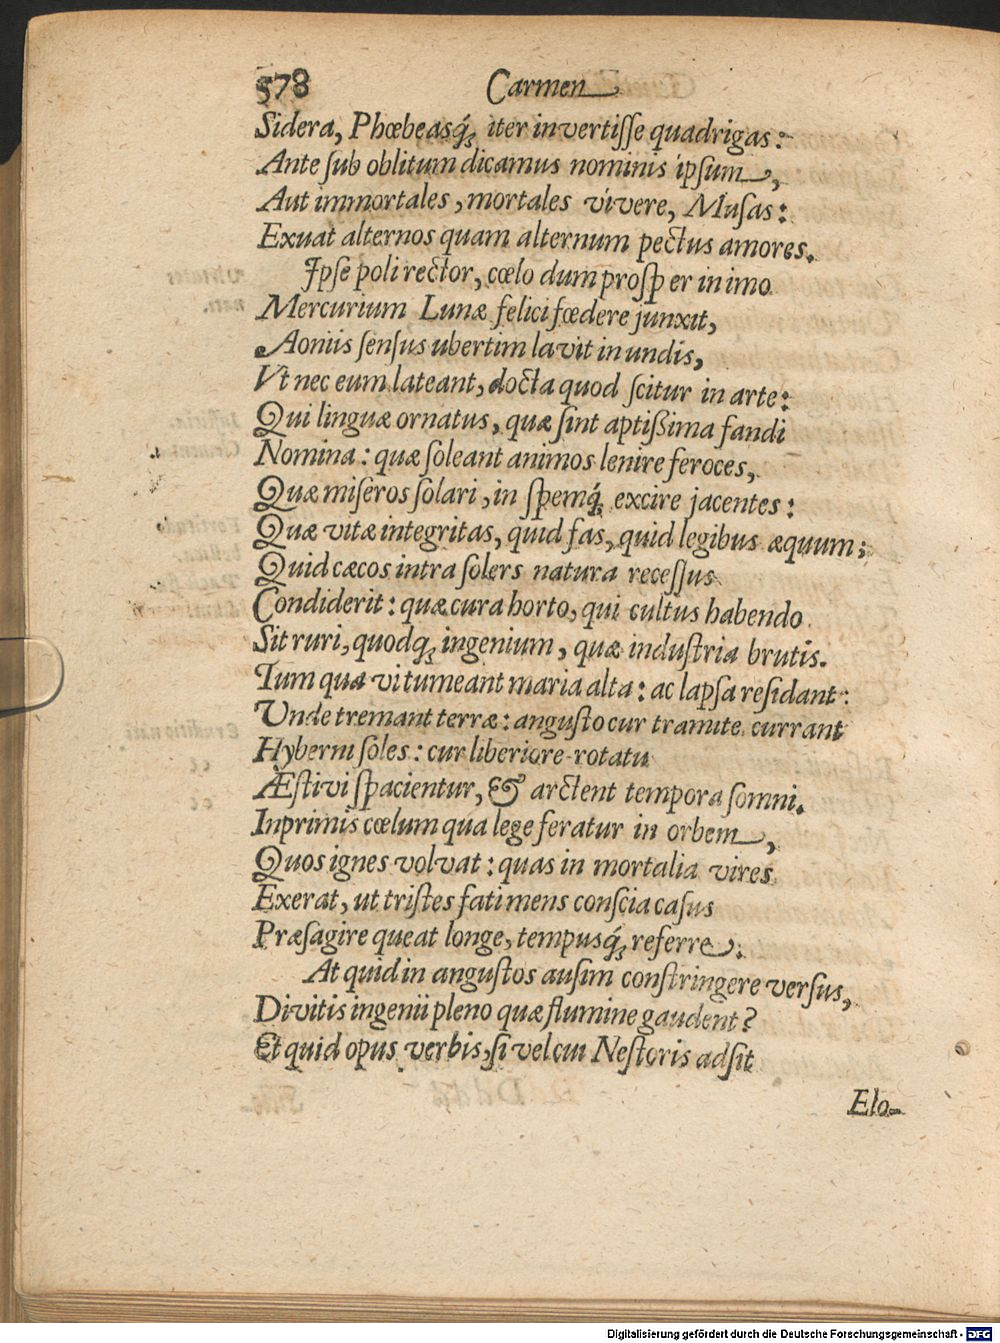 578 Carmen
Sidera, Phœbeasq́; iter invertiſſe quadrigas:
Ante ſub oblitum dicamus nominis ipſum,
Aut immortales, mortales vivere, Muſas:
Exuat alternos quam alternum pectus amores.
Ipſe poli rector, cœlo dum proſper in imo
Mercurium Lunæ felici fœdere junxit,
Aoniis ſenſus ubertim lavit in undis,
Vt nec eum lateant, docta quod ſcitur in arte:
Qui linguæ ornatus, quæ ſint aptißima fandi
Nomina: quæ ſoleant animos lenire feroces,
Quæ miſeros ſolari, in ſpemq́; excire jacentes:
Quæ vitæ integritas, quid fas, quid legibus æquum;
Quid cæcos intra ſolers natura receſſus
Condiderit: quæ cura horto, qui cultus habendo
Sit ruri, quodq; ingenium, quæ induſtria brutis.
Tum qua vi tumeant maria alta: ac lapſa reſidant:
Unde tremant terræ: anguſto cur tramite currant
Hyberni ſoles: cur liberiore rotatu
Æſtivi ſpacientur, & arctent tempora ſomni.
Inprimis cœlum qua lege feratur in orbem,
Quos ignes volvat: quas in mortalia vires
Exerat, ut triſtes fati mens conſcia caſus
Præſagire queat longe, tempusq́; referre.
At quid in anguſtos auſim conſtringere verſus,
Divitis ingenii pleno quæ flumine gaudent?
Et quid opus verbis, ſi vel cui Neſtoris adſit
Elo-
Digitalisierung gefördert durch die Deutsche Forschungsgemeinschaft - DFG